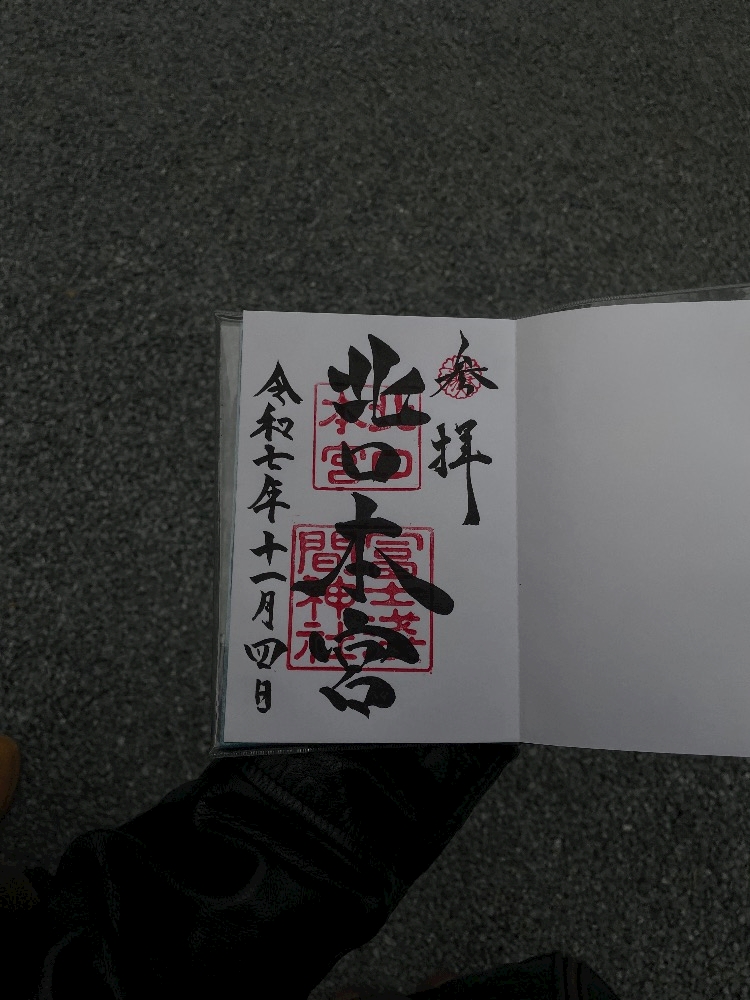 参拝
北口本宮
北口
本宮
冨士浅
間神社
令和七年十一月四日